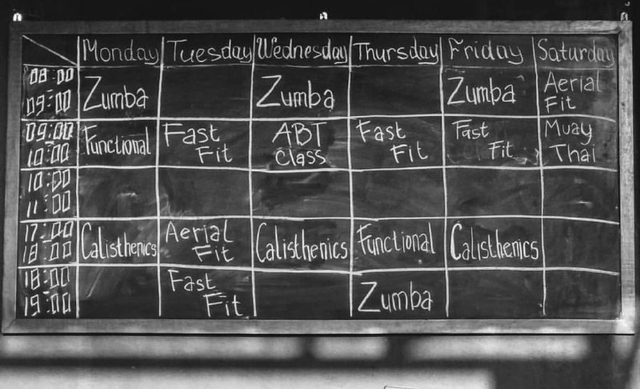 Monday Tuesday Wednesday Thursday Friday Saturday
08:00 09:00 Zumba Zumba Zumba Aerial Fit
09:00 10:00 Functional Fast Fit ABT Class Fast Fit Fast Fit Muay Thai
10:00 11:00
17:00 18:00 Calisthenics Aerial Fit Calisthenics Functional Calisthenics
18:00 19:00 Fast Fit Zumba